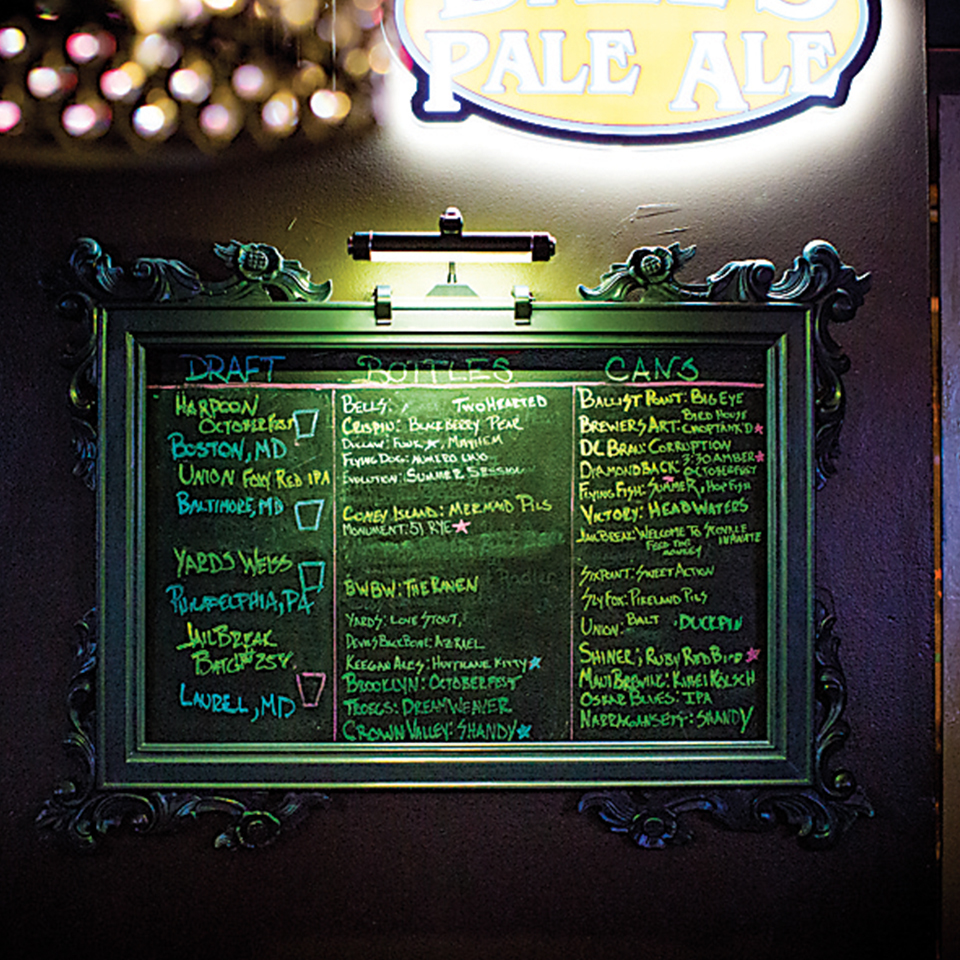 PALE ALE
DRAFT
HARPOON
OCTOBERFEST
BOSTON, MD
UNION FOXY RED IPA
BALTIMORE, MD
YARDS WEISS
PHILADELPHIA, PA
JAILBREAK
LAUREL, MD
BOTTLES
BELLS: TWO HEARTED
CRISPIN: BLACKBERRY PEAR
FLYING DOG: NUMERO UNO
EVOLUTION: SUMMER SESSION
CONEY ISLAND: MERMAID PILS
MONUMENT: 51 RYE
BWBW: THE RAVEN
YARDS: LOVE STOUT,
DEVILS BACKBONE: AZRAEL
KEEGAN ALES: HURRICANE KITTY
BROOKLYN: OCTOBERFEST
TROEGS: DREAMWEAVER
CROWN VALLEY: SHANDY
CANS
BALLIST POINT: BIG EYE
BIRD HOUSE
BREWERS ART: CHOPTANK'D
DC BRAU: CORRUPTION
3:30 AMBER
DIAMONDBACK OCTOBERFEST
FLYING FISH: SUMMER, HOP FISH
VICTORY: HEADWATERS
JAILBREAK: WELCOME TO
FEED THE
MONKEY
SIXPOINT: SWEET ACTION
SLY FOX: PIKELAND PILS
UNION: BALT DUCKPIN
SHINER: RUBY RED BIRD
MAUI BREWING: KÖLSCH
OSKAR BLUES: IPA
NARRAGANSETT: SHANDY